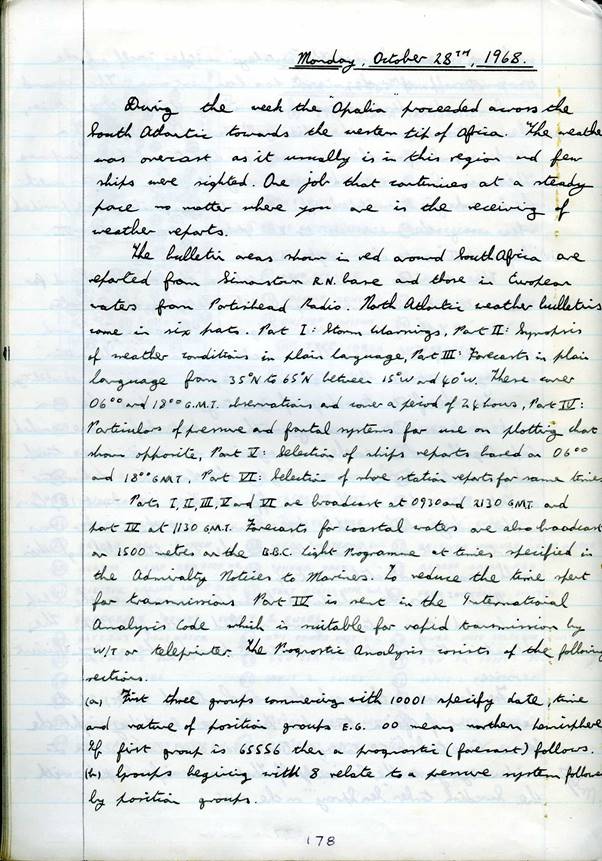 Monday, October 28TH, 1968.
During the week the "Opalia" proceeded across the
South Atlantic towards the western tip of Africa. The weather
was overcast as it usually is in this region and few
ships were sighted. One job that continues at a steady
pace no matter where you are is the receiving of
weather reports.
The bulletin areas shown in red around South Africa are
reported from Simonstown R.N. base and those in European
waters from Portishead Radio. North Atlantic weather bulletins
come in six parts. Part I: Storm Warnings, Part II: Synopsis
of weather conditions in plain language, Part III: Forecasts in plain
language from 35°N to 65°N between 15°W and 40°W. These cover
06°° and 18°° G.M.T. observations and cover a period of 24 hours, Part IV:
Particulars of pressure and frontal systems for use on plotting chart
shown opposite, Part V: Selection of ships reports based on 06°°
and 18°° G.M.T., Part VI: Selection of shore station reports for same times
Parts I, II, III, V and VI are broadcast at 0930 and 2130 GMT and
part IV at 1130 G.M.T. Forecasts for coastal waters are also broadcast
on 1500 metres on the B.B.C. Light Programme at times specified in
the Admiralty Notices to Mariners. To reduce the time spent
for transmissions Part IV is sent in the International
Analysis Code which is suitable for rapid transmission by
W/T or teleprinter. The Prognostic Analysis consists of the following
sections.
(a) First three groups commencing with 10001 specify date, time
and nature of position groups E.G. 00 means northern hemisphere
If first group is 65556 then prognostic (forecast) follows.
(b) Groups begining with 8 relate to a pressure system followed
by position groups.
178